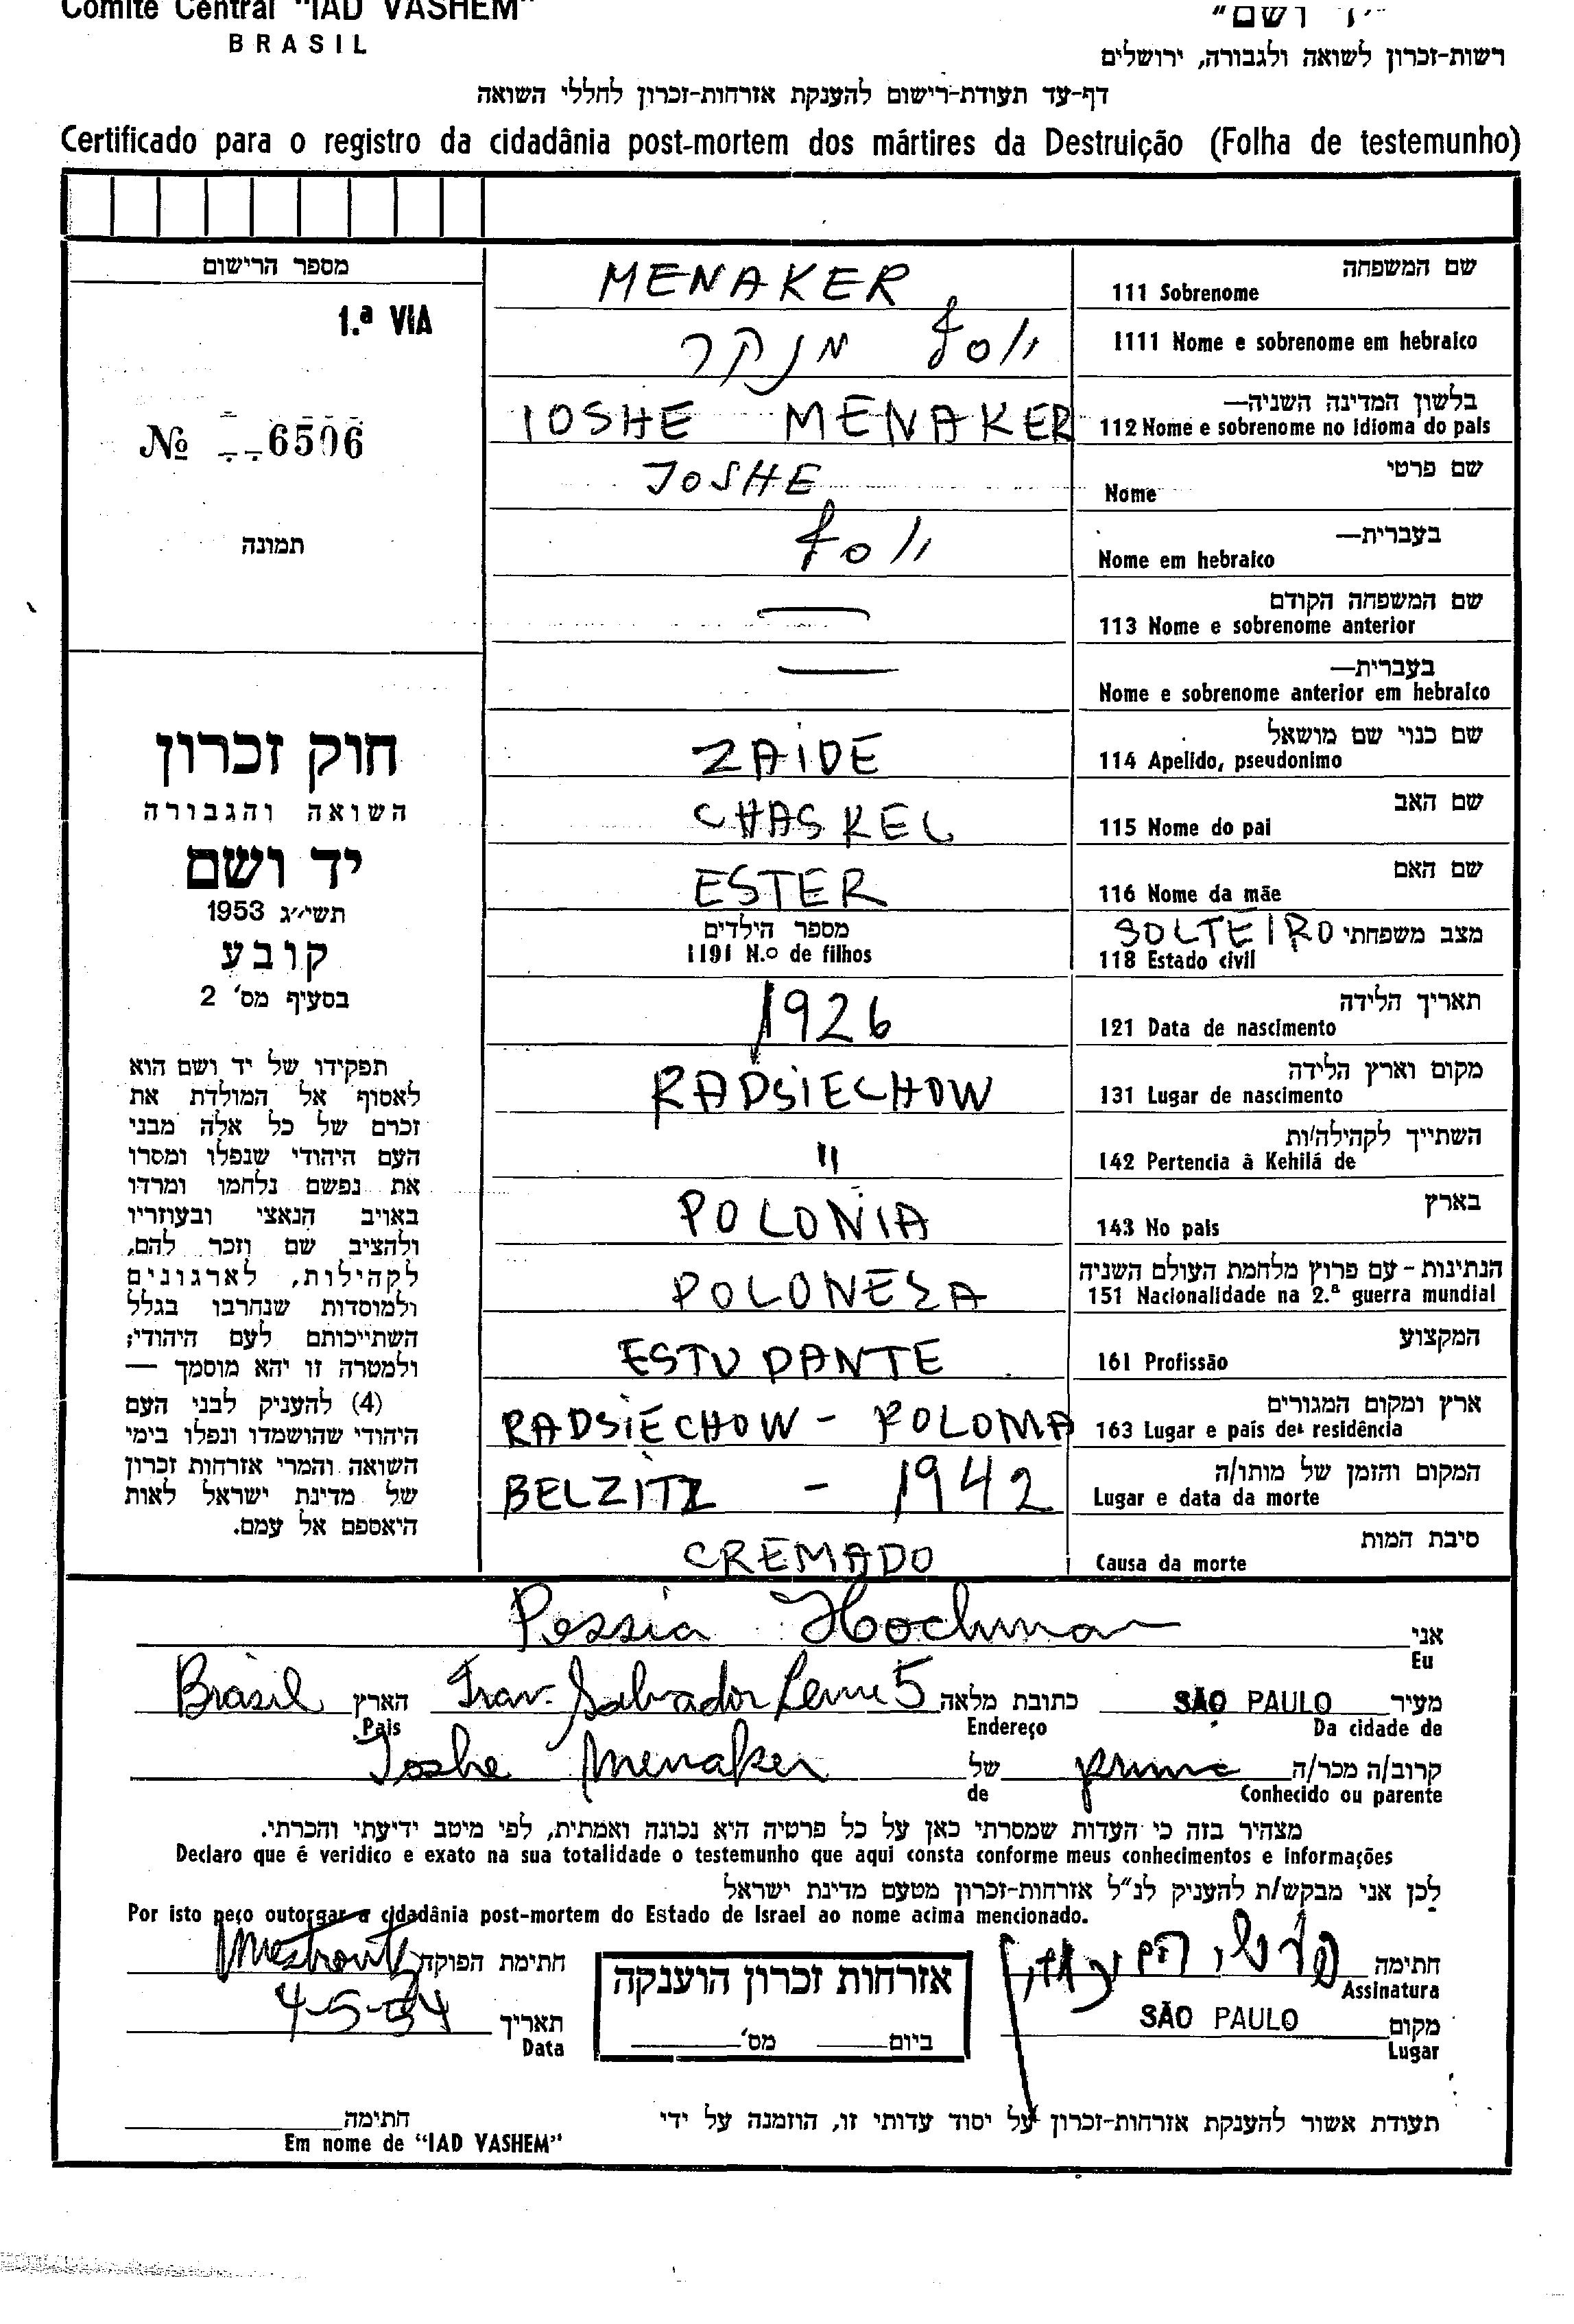 Comitê Central "IAD VASHEM"
BRASIL
ושם"
רשות-זכרון לשואה ולגבורה, ירושלים
דף-עד תעודת-רישום להענקת אזרחות-זכרון לחללי השואה
Certificado para o registro da cidadânia post-mortem dos mártires da Destruição (Folha de testemunho)
מספר הרישום
1.ª VIA
№ 6506
תמונה
חוק זכרון
השואה והגבורה
יד ושם
תשי״ג 1953
קובע
בסעיף מס' 2
תפקידו של יד ושם הוא
לאסוף אל המולדת את
זכרם של כל אלה מבני
העם היהודי שנפלו ומסרו
את נפשם נלחמו ומרדו
באויב הנאצי ובעוזריו
ולהציב שם וזכר להם,
לקהילות, לארגונים
ולמוסדות שנחרבו בגלל
השתייכותם לעם היהודי;
ולמטרה זו יהא מוסמך —
(4) להעניק לבני העם
היהודי שהושמדו ונפלו בימי
השואה והמרי אזרחות זכרון
של מדינת ישראל לאות
היאספם אל עמם.
שם המשפחה
111 Sobrenome MENAKER
1111 Nome e sobrenome em hebraico יוסף מנקר
בלשון המדינה השניה—
112 Nome e sobrenome no idioma do pais IOSHE MENAKER
שם פרטי
Nome JOSHE
בעברית—
Nome em hebraico יוסף
שם המשפחה הקודם
113 Nome e sobrenome anterior —
בעברית—
Nome e sobrenome anterior em hebraico —
שם כנוי שם מושאל
114 Apelido, pseudonimo ZAIDE
שם האב
115 Nome do pai CHASKEL
שם האם
116 Nome da mãe ESTER
מצב משפחתי SOLTEIRO
118 Estado civil
מספר הילדים
1191 N.º de filhos
תאריך הלידה
121 Data de nascimento 1926
מקום וארץ הלידה
131 Lugar de nascimento RADSIECHOW
השתייך לקהילה/ות
142 Pertencia à Kehilá de "
בארץ
143 No pais POLONIA
הנתינות - עם פרוץ מלחמת העולם השניה
151 Nacionalidade na 2.ª guerra mundial POLONESA
המקצוע
161 Profissão ESTUDANTE
ארץ ומקום המגורים
163 Lugar e país de residência RADSIECHOW - POLONIA
המקום והזמן של מותו/ה
Lugar e data da morte BELZITZ - 1942
סיבת המות
Causa da morte CREMADO
אני Pessia Hochman
Eu
מעיר SÃO PAULO כתובת מלאה Trav. Salvador Leme 5 הארץ Brasil
Da cidade de Endereço Pais
קרוב/ה מכר/ה prima של Ioshe Menaker
Conhecido ou parente de
מצהיר בזה כי העדות שמסרתי כאן על כל פרטיה היא נכונה ואמתית, לפי מיטב ידיעתי והכרתי.
Declaro que é veridico e exato na sua totalidade o testemunho que aqui consta conforme meus conhecimentos e informações
לכן אני מבקש/ת להעניק לנ״ל אזרחות-זכרון מטעם מדינת ישראל
Por isto peço outorgar a cidadânia post-mortem do Estado de Israel ao nome acima mencionado.
חתימה
Assinatura
חתימת הפוקד
מקום SÃO PAULO
Lugar
תאריך 4-5-94
Data
אזרחות זכרון הוענקה
ביום מס'
תעודת אשור להענקת אזרחות-זכרון על יסוד עדותי זו, הוזמנה על ידי
חתימה
Em nome de "IAD VASHEM"